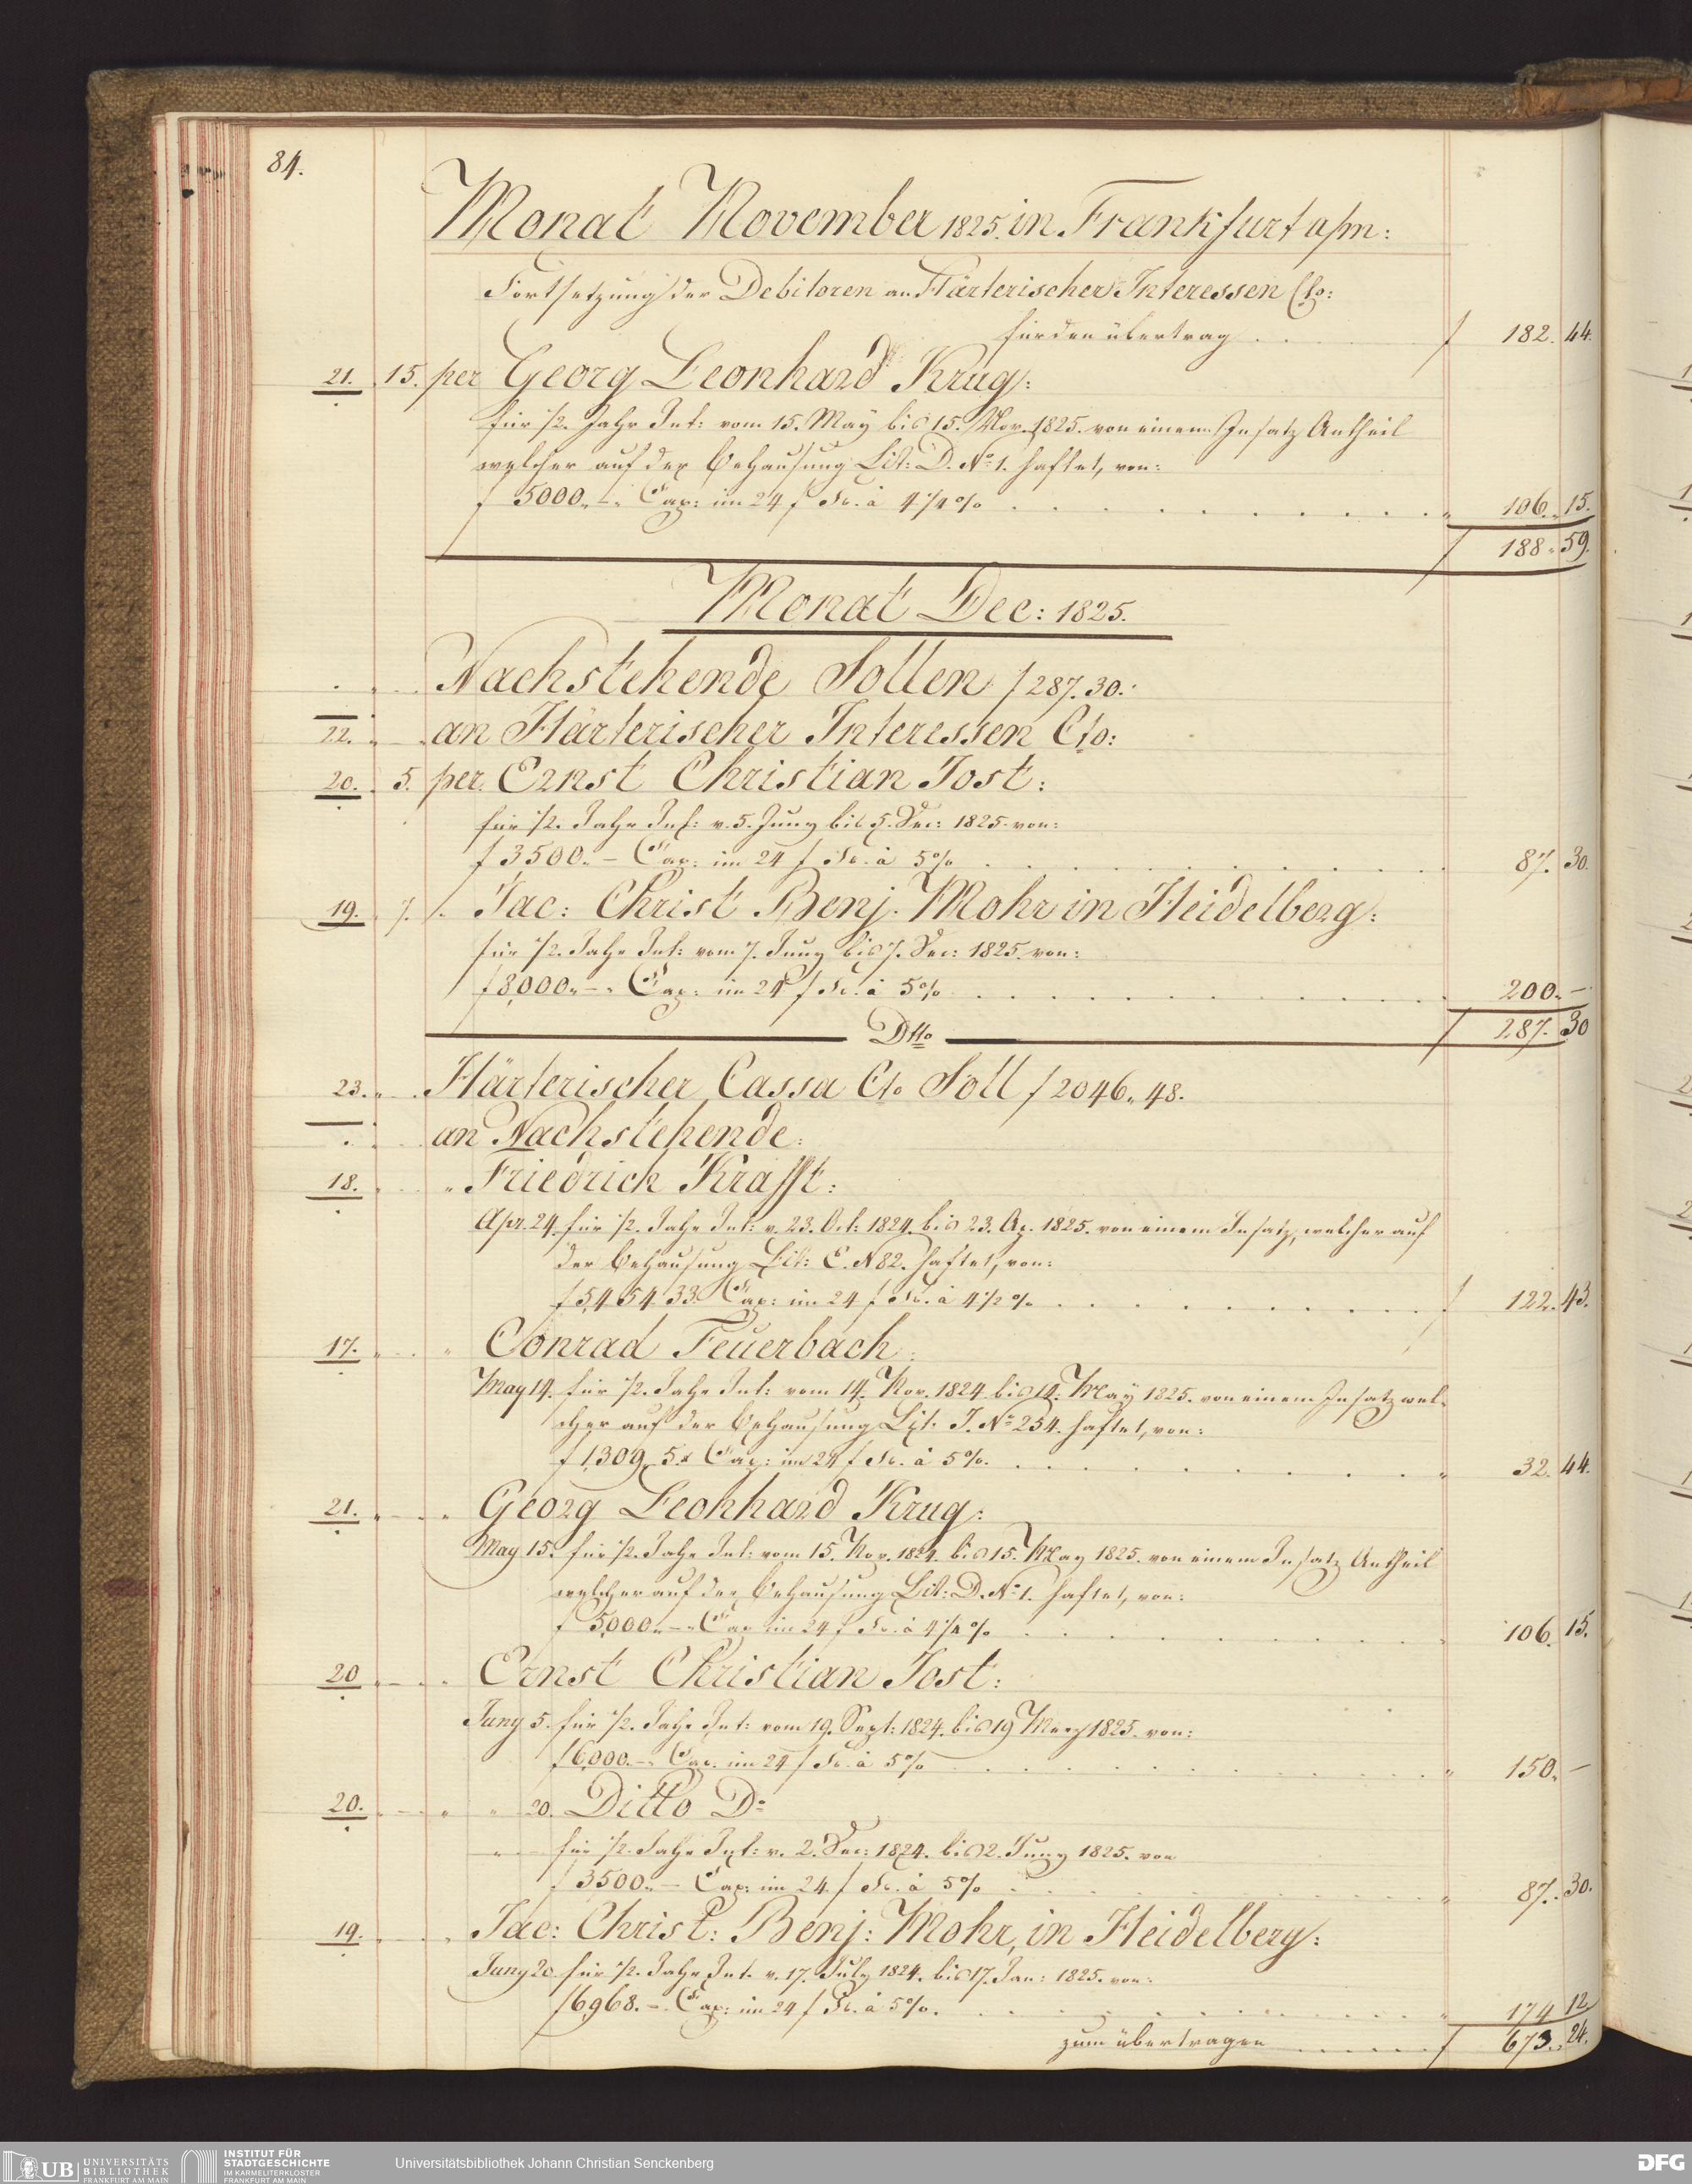 84.
Monat November 1825. in Frankfurt a/m:
Fortsetzung der Debitoren an Härterischer Interessen Cto:
für den übertrag . . . f 182. 44.
21. 15. per Georg Leonhard Krug:
für 1/2. Jahr Int: vom 15. May bis 15. Nov. 1825. von einem Insatz Antheil
welcher auf der Behausung Lit: D. No. 1. haftet, von:
f 5000.„–„ Cap: im 24 f Fs. à 4 1/4 % . . . „ 106.„ 15.
f 188„ 59.
Monat Dec: 1825.
Nachstehende Sollen f 287. 30.:
22. an Härterischer Interessen Cto:
20. 5. per Ernst Christian Jost:
für 1/2. Jahr Int: v. 5. Juny bis 5. Dec: 1825. von:
f 3500.„– Cap: im 24 f Fs. à 5% . . . 87. 30.
19. 7. /. Jac: Christ Benj: Mohr in Heidelberg:
für 1/2. Jahr Int: vom 7. Juny bis 7. Dec: 1825. von:
f 8,000„–„ Cap: im 24 f Fs. à 5% . . . 200.„ –
f 287. 30
Dtto
23. Härterischer Cassa Cto Soll f 2046„ 48.
an Nachstehende:
18. „ Friedrich Krafft:
Apr. 24. für 1/2. Jahr Int: v. 23. Oct: 1824. bis 23. Ap. 1825. von einem Insatz, welcher auf
der Behausung Lit: E. N 82. haftet, von:
f 5,454 33. Cap: im 24 f Fs. à 4 1/2 % . . . f 122. 43.
17. „ Conrad Feuerbach:
May 14. für 1/2. Jahr Int: vom 14. Nov. 1824. bis 14. May 1825. von einem Insatz wel-
cher auf der Behausung Lit. J. No. 254. haftet, von:
f 1,309„ 5x Cap: im 24 f Fs. à 5%. . . . „ 32. 44.
21. „ Georg Leonhard Krug:
May 15. für 1/2. Jahr Int: vom 15. Nov. 1824. bis 15. May 1825. von einem Insatz Antheil
welcher auf der Behausung Lit: D. No. 1. haftet, von:
f 5,000„–„ Cap im 24 f Fs. à 4 1/4 % . . . „ 106. 15.
20 „ Ernst Christian Jost:
Juny 5. für 1/2. Jahr Int: vom 19. Sept: 1824. bis 19 Merz 1825. von:
f 6,000.–„ Cap. im 24 f Fs. à 5% . . . „ 150„ –
20. „ „ 20. Ditto Do
„ für 1/2. Jahr Int: v. 2. Dec: 1824. bis 2. Juny 1825. von
f 3,500„– Cap: im 24. f Fs. à 5% . . . „ 87. 30.
19. „ Jac: Christ: Benj: Mohr, in Heidelberg:
Juny 20 für 1/2. Jahr Int. v. 17. July 1824. bis 17. Jan: 1825. von:
f 6,968.–. Cap: im 24 f Fs. à 5%. . . . „ 174 12
zum übertragen . . . f 673„ 24.
UB UNIVERSITÄTS BIBLIOTHEK FRANKFURT AM MAIN
INSTITUT FÜR STADTGESCHICHTE IM KARMELITERKLOSTER FRANKFURT AM MAIN
Universitätsbibliothek Johann Christian Senckenberg
DFG